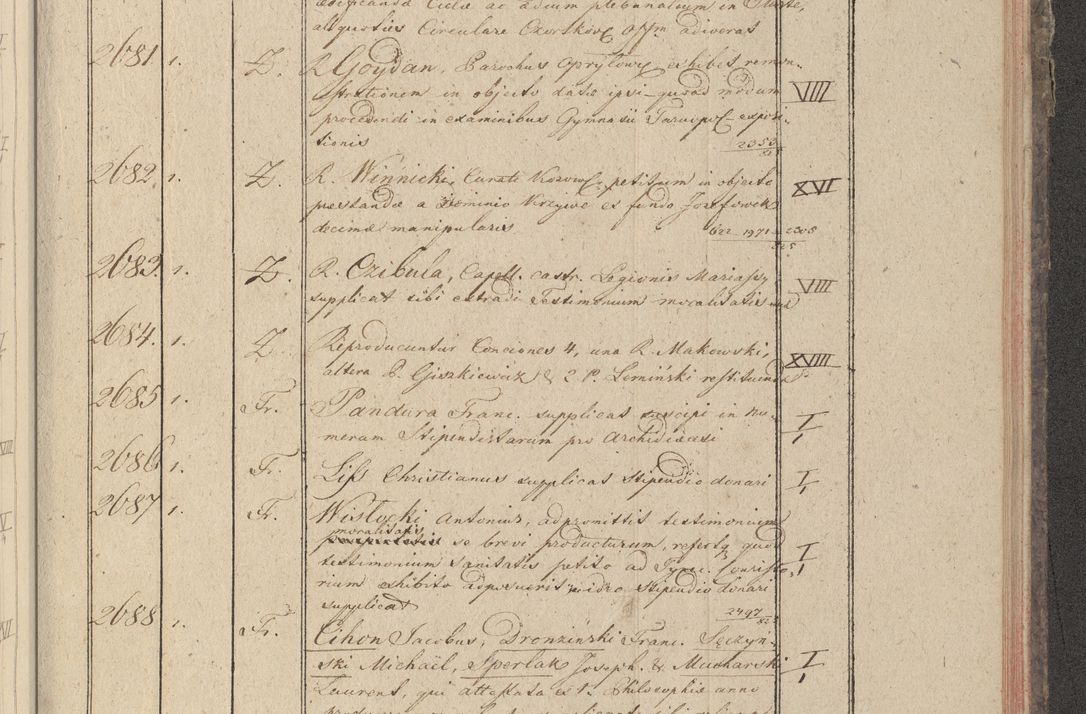 aedificandae Ecclae ac aedium plebanalium in
altqustius Circulare Czortkov. offm adiverat
2681. 1. Z. R. Goydan, Parochus Oprylow. exhibet remon-
strationem in objecto datae ipsi quoad modum VIII
procedendi in examinibus Gymnasii Tarnopol. expon-
tionis 2353/825
2682. 1. Z. R. Winnicki, Curati Kozow. petitum in objecto XVI
praestandae a Dominio Krzywe ex fundo Jozefowek
decimae manipularis 622 1971 2305/825
2683. 1. Z. R. Czibula, Capell. castr. Legionis Mariassy VIII
supplicat sibi extradi Testimonium moralitatis
2684. 1. Z. Reproducuntur Conciones 4, una R. Makowski, XVIII
altera P. Giszkiewicz & 2 P. Lemiński restituendae
2685 1. Fr. Pandura Franc. supplicat suscipi in nu- I
merum Stipendistarum pro Archidioecesi
2686 1. Fr. Liss Christianus supplicat Stipendio donari I
2687 1. Fr. Wisłocki Antonius, adpromittit testimonium
moralitatis
se brevi producturum, refertq quod I
testimonium sanitatis petito ad Consisto-
rium exhibito adposuerit ideo Stipendio donari
supplicat 2497/825
2688 1. Fr. Cihon Jacobus, Dronziński Franc. Sęczyn-
ski Michaël, Sperlak Joseph. & Mucharski I
Laurent, qui attestata ex 1. Philosophiae anno